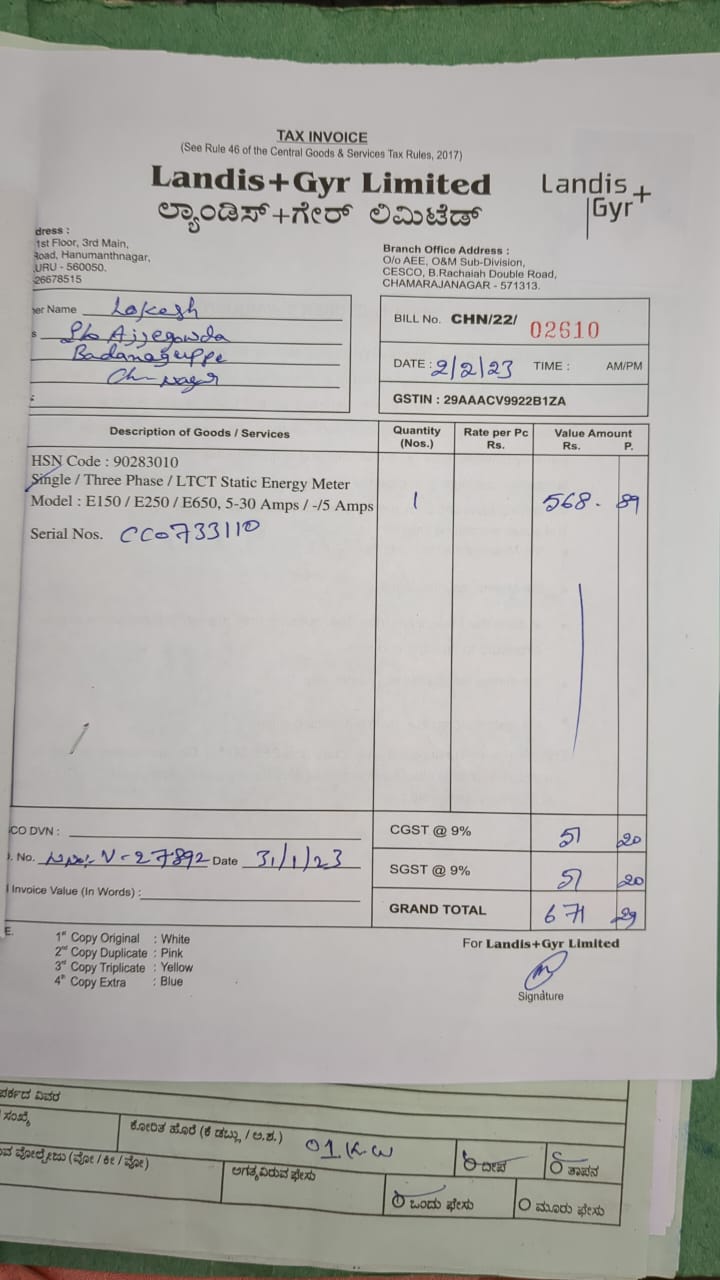 TAX INVOICE
(See Rule 46 of the Central Goods & Services Tax Rules, 2017)
Landis+Gyr Limited
ಲ್ಯಾಂಡಿಸ್+ಗೇರ್ ಲಿಮಿಟೆಡ್
Landis+
Gyr
dress :
1st Floor, 3rd Main,
Road, Hanumanthnagar,
URU - 560050.
26678515
Branch Office Address :
O/o AEE, O&M Sub-Division,
CESCO, B.Rachaiah Double Road,
CHAMARAJANAGAR - 571313.
er Name Lokesh
s S/o Ajjegowda
Badanaguppe
Ch-Nagar
BILL No. CHN/22/ 02610
DATE : 2/2/23 TIME : AM/PM
GSTIN : 29AAACV9922B1ZA
Description of Goods / Services Quantity (Nos.) Rate per Pc Rs. Value Amount Rs. P.
HSN Code : 90283010
Single / Three Phase / LTCT Static Energy Meter
Model : E150 / E250 / E650, 5-30 Amps / -/5 Amps 1 568 - 89
Serial Nos. CC0733110
CO DVN :
CGST @ 9% 51 20
. No. V-27892 Date 31/1/23
SGST @ 9% 51 20
Invoice Value (In Words) :
GRAND TOTAL 671 29
E.
1st Copy Original : White
2nd Copy Duplicate : Pink
3rd Copy Triplicate : Yellow
4th Copy Extra : Blue
For Landis+Gyr Limited
Signature
ಪರ್ಕದ ವಿವರ
ಸಂಖ್ಯೆ
ಕೋರಿತ ಹೊರೆ (ಕೆ ಡಬ್ಲ್ಯು / ಅ.ಶ.) 01 KW
ದೀಪ
ತಾಪನ
ವ ವೋಲ್ಟೇಜು (ವೋ / ಕೀ / ವೋ)
ಅಗತ್ಯವಿರುವ ಫೇಸು
ಒಂದು ಫೇಸು
ಮೂರು ಫೇಸು